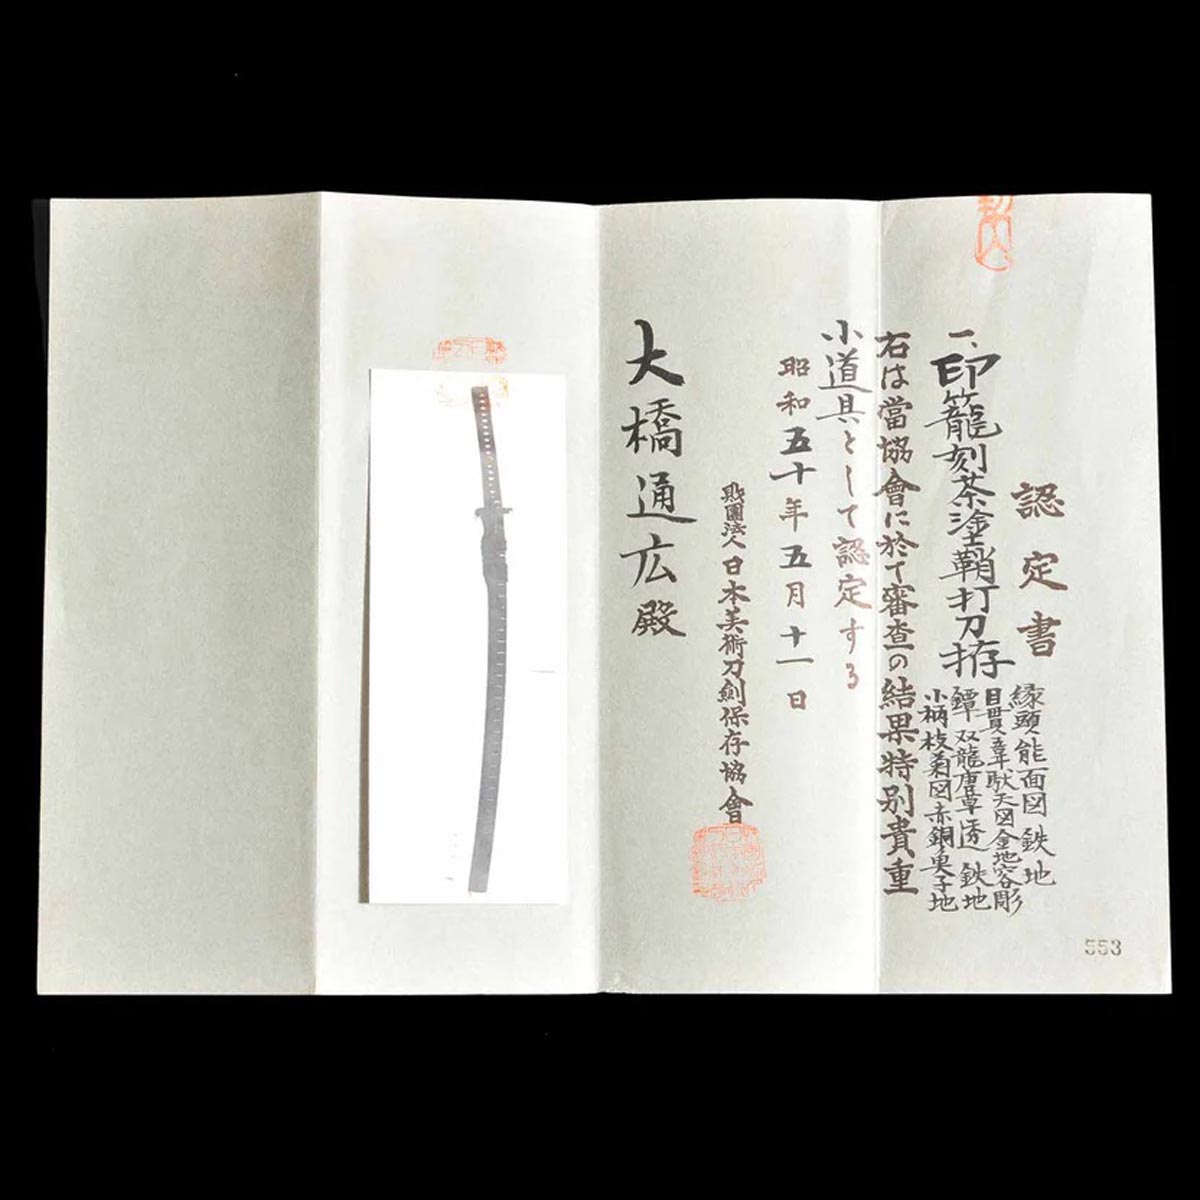 認定書
一、印籠刻茶塗鞘打刀拵
縁頭能面図鉄地
目貫韋駄天図金地容彫
鐔双龍唐草透鉄地
小柄枝菊図赤銅魚子地
右は當協會に於て審査の結果特別貴重
小道具として認定する
昭和五十年五月十一日
財團法人日本美術刀剣保存協會
大橋通広殿
553